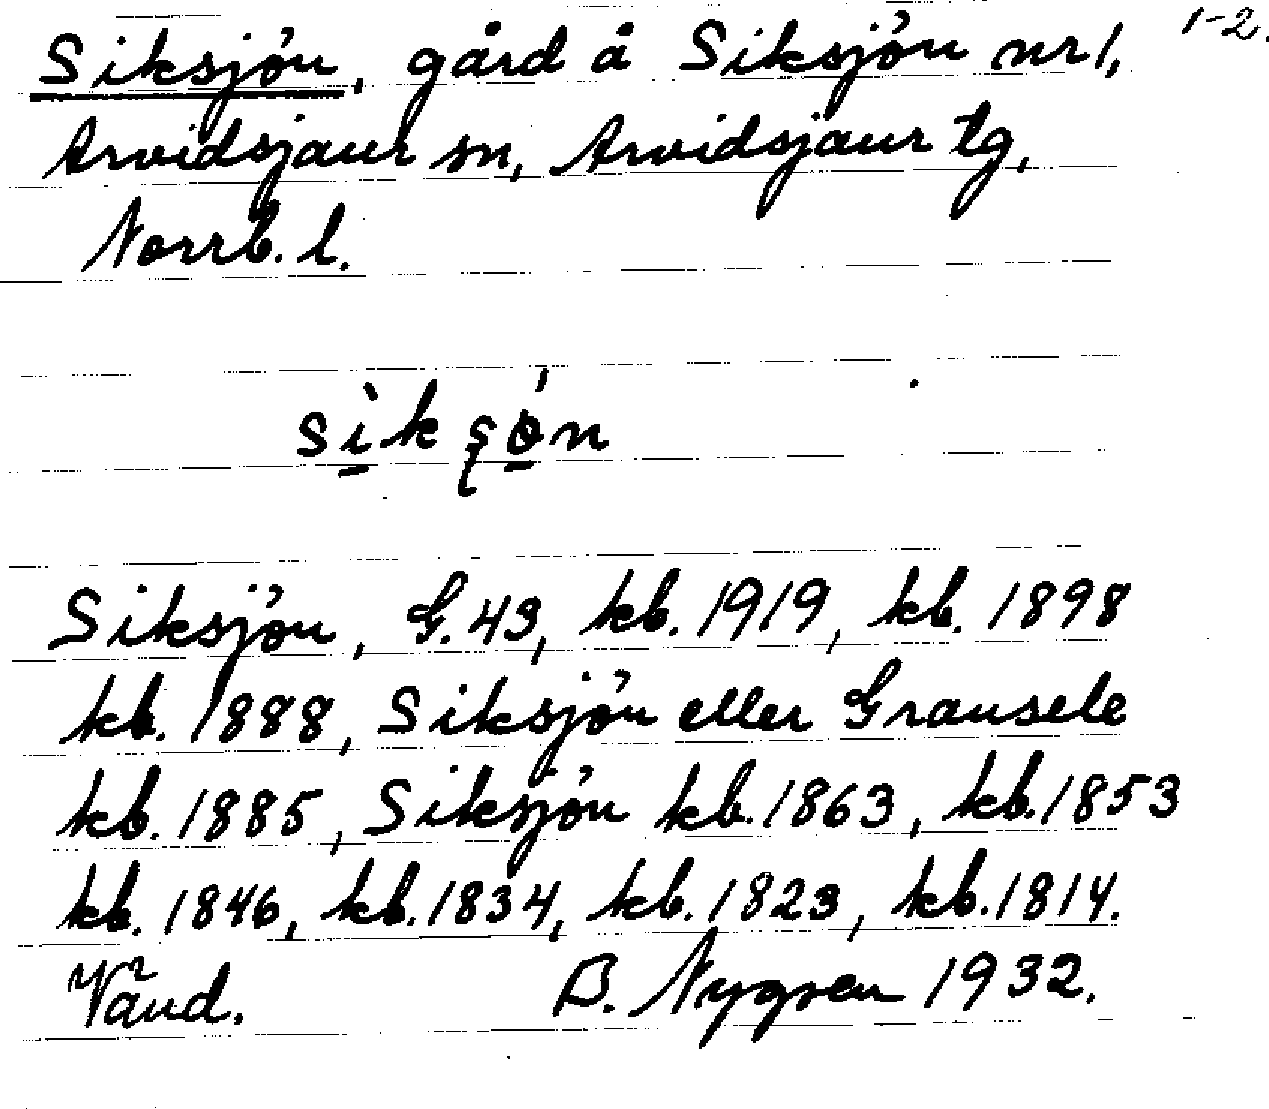 1-2.
Siksjön, gård å Siksjön nr 1,
Arvidsjaur sn, Arvidsjaur tg,
Norrb. l.
sìkʂø̀n
Siksjön, G.43, kb. 1919, kb. 1898
kb. 1888, Siksjön eller Grausele
kb. 1885, Siksjön kb. 1863, kb. 1853
kb. 1846, kb. 1834, kb. 1823, kb. 1814.
Vänd. B. Nygren 1932.